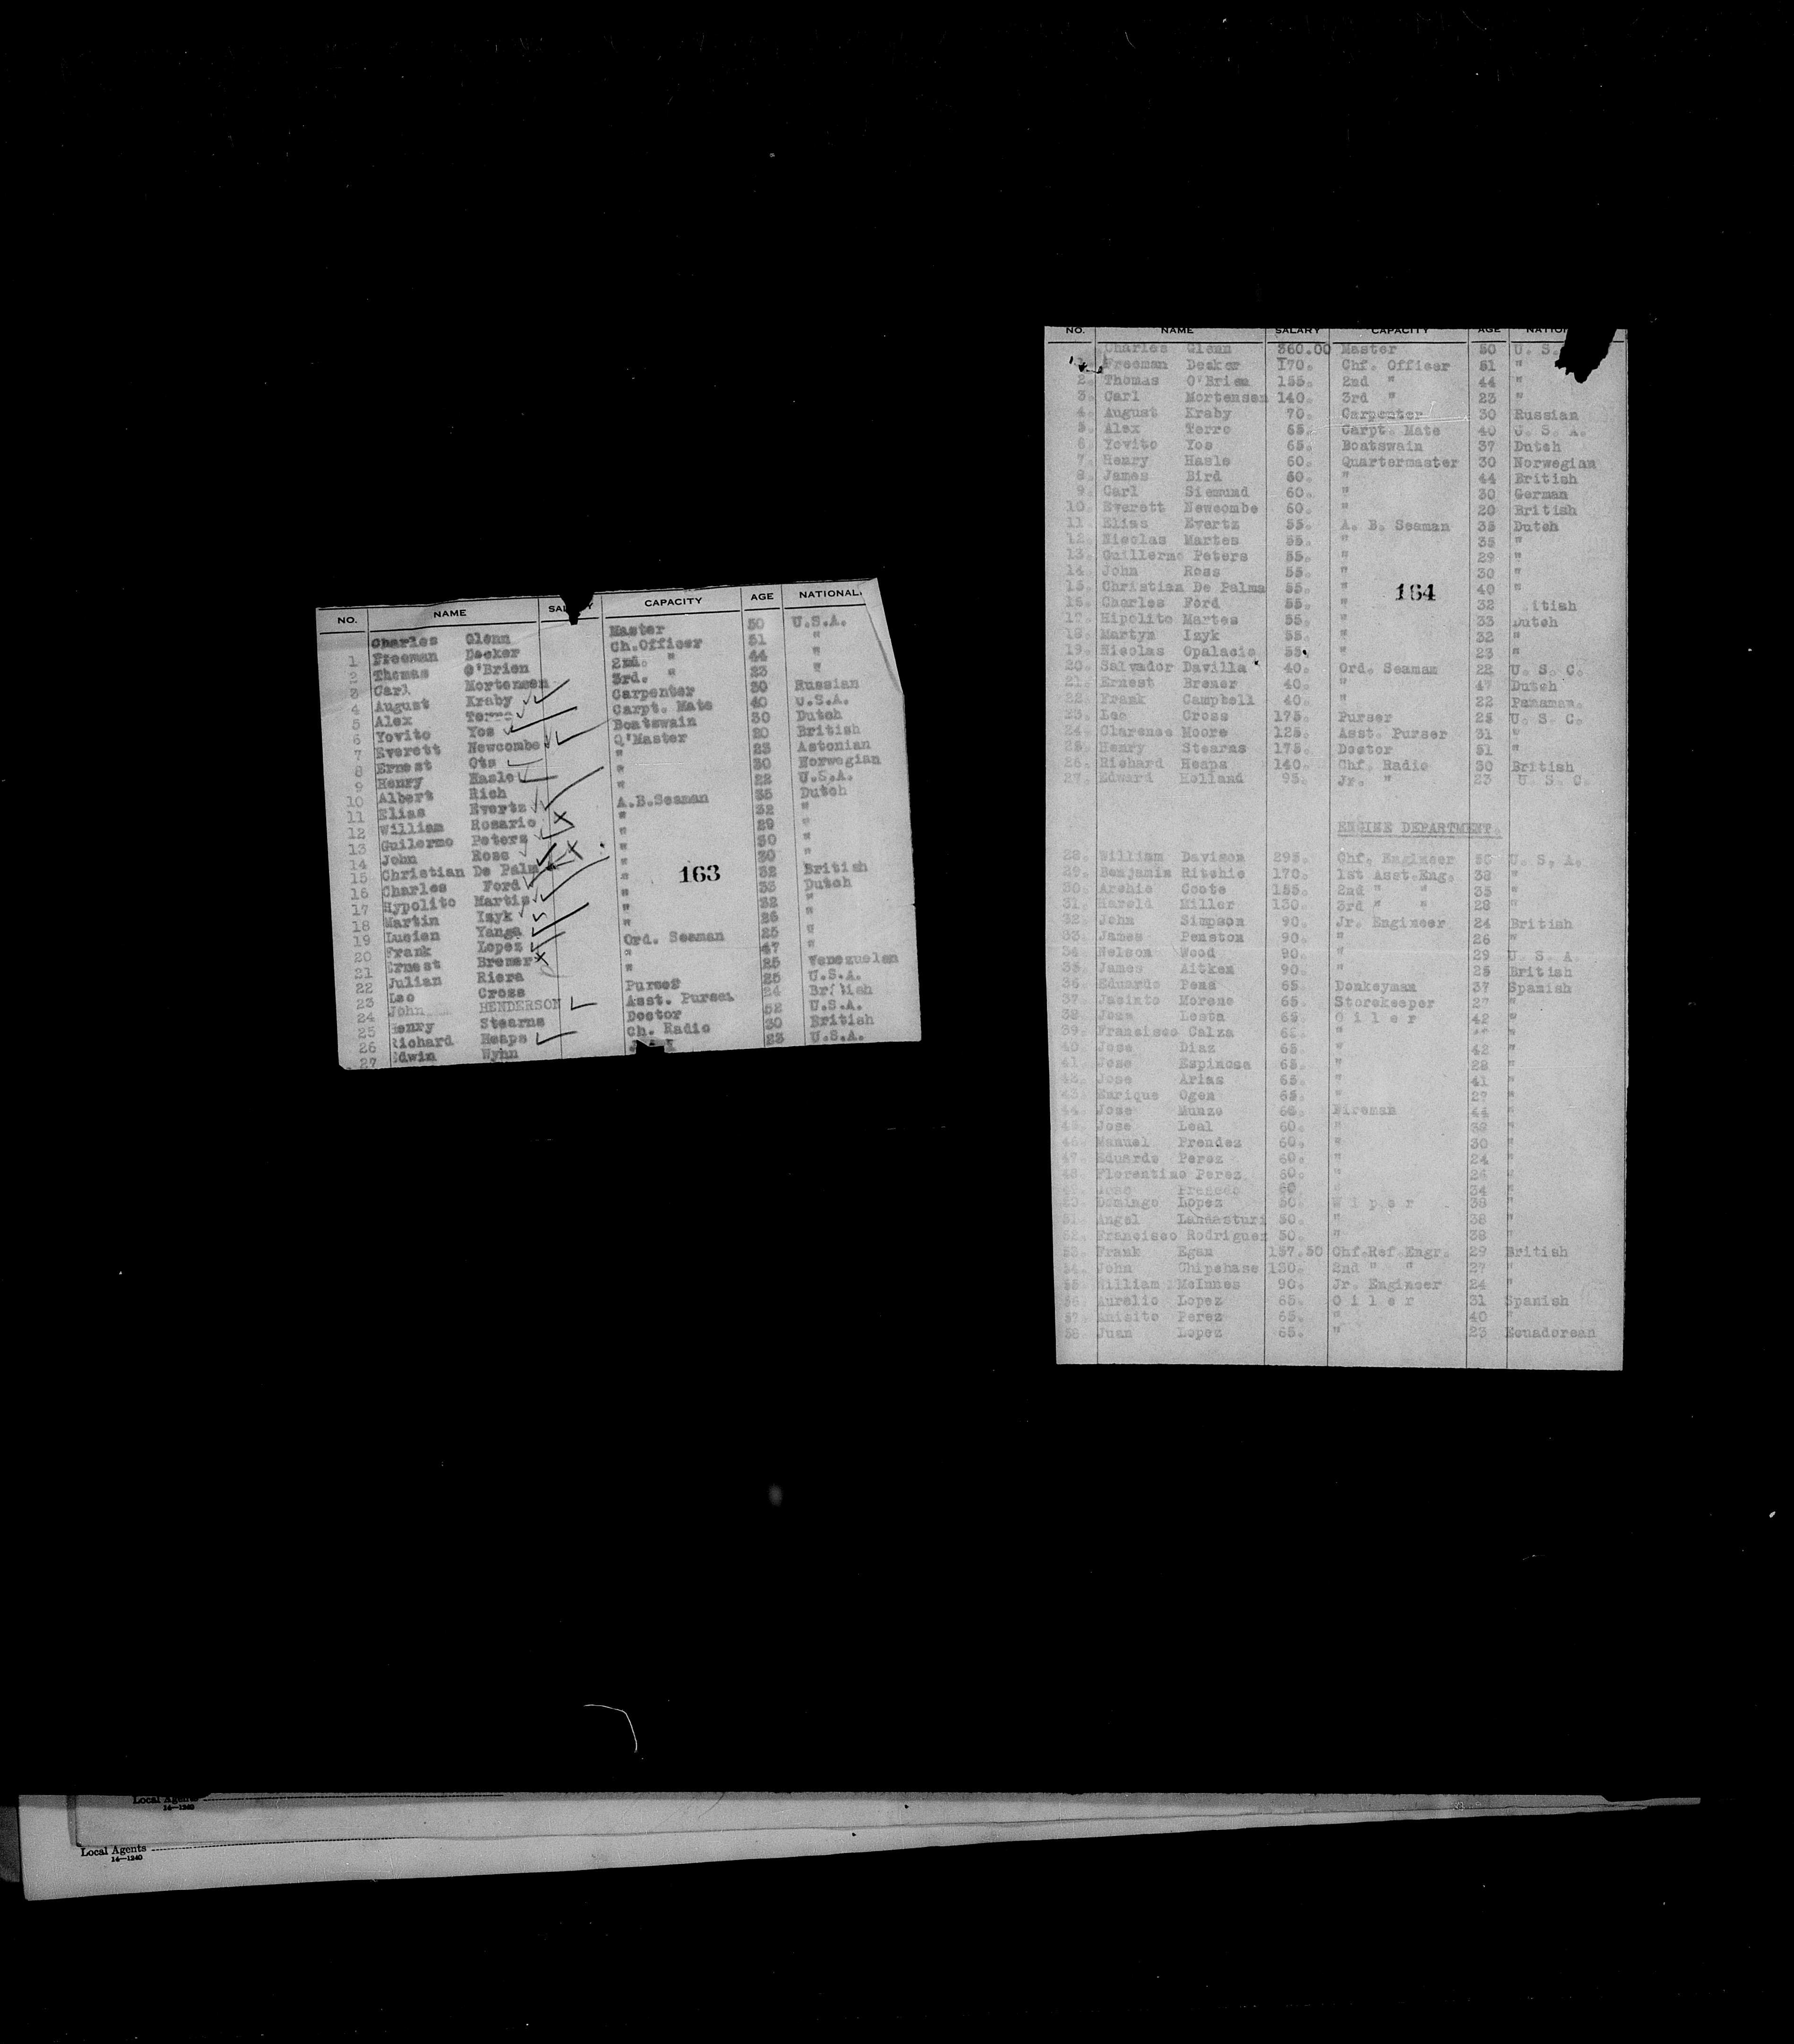 NO. NAME CAPACITY AGE NATIONAL
Charles Glenn Master 50 U.S.A.
1 Freeman Decker Ch.Officer 51 "
2 Thomas O'Brien 2nd. " 44 "
3 Carl Mortensen 3rd. " 23 "
4 August Kraby Carpenter 30 Russian
5 Alex Carpt. Mate 40 U.S.A.
6 Yovito Yos Boatswain 30 Dutch
7 Everett Newcombe Q'Master 20 British
8 Ernest Ots " 23 Astonian
9 Henry Hasle " 30 Norwegian
10 Albert Rich " 22 U.S.A.
11 Elias Evertz A.B.Seaman 35 Dutch
12 William Rosario " 32 "
13 Guilermo Peters " 29 "
14 John Rose " 30 "
15 Christian De Palm " 30 "
16 Charles Ford " 32 British
17 Hypolito Martis " 33 Dutch
18 Martin Izyk " 32 "
19 Lucien Yanga " 26 "
20 Frank Lopez Ord. Seaman 25 "
21 Ernest Bremer " 47 "
22 Julian Riera " 25 Venezuelan
23 Leo Cross Purser 25 U.S.A.
24 John HENDERSON Asst. Purser 24 British
25 Henry Stearns Doctor 52 U.S.A.
26 Richard Heaps Ch. Radio 30 British
27 Edwin Wynn 23 U.S.A.
163
NO. NAME SALARY CAPACITY AGE
Charles Glenn 360.00 Master 50 U. S.
Freeman Decker 170. Chf. Officer 51 "
2. Thomas O'Brien 155. 2nd " 44 "
3. Carl Mortensen 140. 3rd " 23 "
4. August Kraby 70. Carpenter 30 Russian
5. Alex Terro 65. Carpt. Mate 40 U. S. A.
6 Yovito Yos 65. Boatswain 37 Dutch
7. Henry Hasle 60. Quartermaster 30 Norwegian
8. James Bird 60. " 44 British
9. Carl Siemund 60. " 30 German
10. Everett Newcombe 60. " 20 British
11. Elias Evertz 55. A. B. Seaman 35 Dutch
12. Nicolas Martes 55. " 35 "
13. Guillermo Peters 55. " 29 "
14. John Ross 55. " 30 "
15. Christian De Palma 55. " 40 "
16. Charles Ford 55. " 32 itish
17. Hipolito Martes 55. " 33 Dutch
18. Martyn Izyk 55. " 32 "
19. Nicolas Opalacio 55. " 23 "
20. Salvador Davilla 40. Ord. Seaman 22 U. S. C.
21. Ernest Bremer 40. " 47 Dutch
22. Frank Campbell 40. " 22 Panaman.
23. Leo Cross 175. Purser 25 U. S. C.
24. Clarence Moore 125. Asst. Purser 31 "
25. Henry Stearns 175. Doctor 51 "
26. Richard Heaps 140. Chf. Radio 30 British
27. Edward Holland 95. Jr. " 23 U. S. C.
164
ENGINE DEPARTMENT.
28. William Davison 295. Chf. Engineer 56 U. S. A.
29. Benjamin Ritchie 170. 1st Asst.Eng. 38 "
30. Archie Coote 155. 2nd " " 35 "
31. Harold Miller 130. 3rd " " 28 "
32. John Simpson 90. Jr. Engineer 24 British
33. James Penston 90. " 26 "
34. Nelson Wood 90. " 29 U. S. A.
35. James Aitken 90. " 25 British
36. Eduardo Pena 65. Donkeyman 37 Spanish
37. Jacinto Moreno 65. Storekeeper 27 "
38. Lesta 65. O i l e r 42 "
39. Francisco Calza 65. " "
40. Jose Diaz 65. " 42 "
41. Jose Espinosa 65. " 28 "
42. Jose Arias 65. " 41 "
43. Enrique Ogen 65. " 27 "
44. Jose Munzo 60. Fireman 44 "
45. Jose Leal 60. " 38 "
46. Manuel Prendez 60. " 30 "
47. Eduardo Perez 60. " 24 "
48. Florentino Perez 60. " 26 "
49. Jose 60. " 34 "
50. Domingo Lopez 50. W i p e r 38 "
51. Angel 50. " 38 "
52. Francisco Rodriguez 50. " 38 "
53. Frank Egan 157.50 Chf.Ref.Engr. 29 British
54. John Chipchase 120. 2nd " " 27 "
55. William McInnes 90. Jr. Engineer 24 "
56. Aurelio Lopez 65. O i l e r 31 Spanish
57. Perez 65. " 40 "
58. Juan Lopez 65. " 23 Ecuadorean
Local Agents
14—1240
Local Agents
14—1240